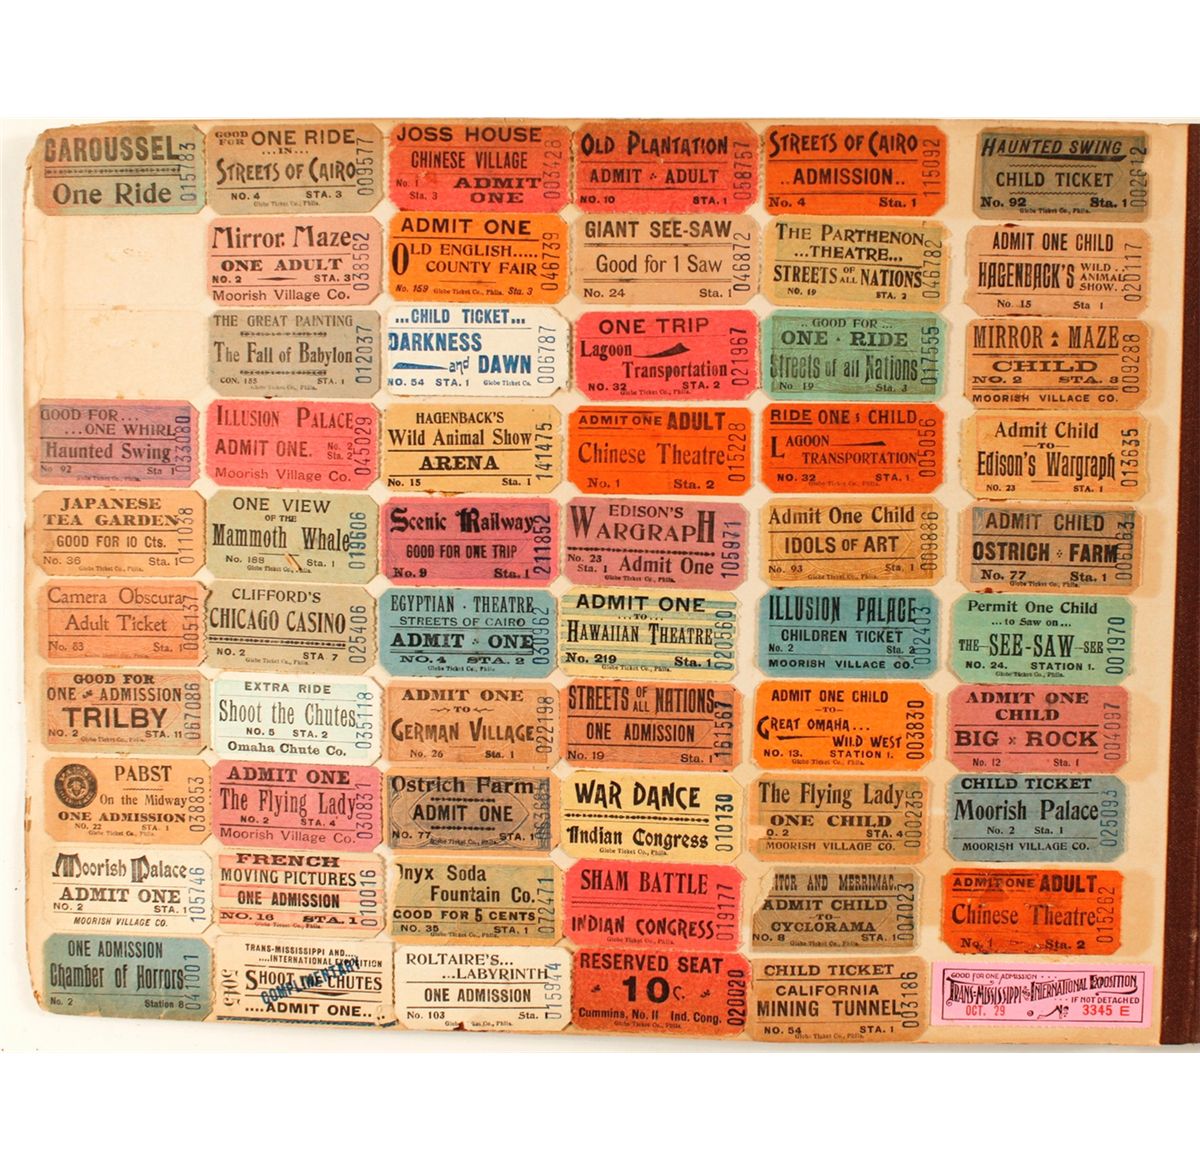 CAROUSSEL
One Ride
015783
GOOD FOR ONE RIDE
...IN...
STREETS OF CAIRO
NO. 4 STA. 3
Globe Ticket Co., Phila.
009577
JOSS HOUSE
CHINESE VILLAGE
No. 1 ADMIT
Sta. 3 ONE
003428
OLD PLANTATION
ADMIT ADULT
NO. 10 STA. 1
058757
STREETS OF CAIRO
..ADMISSION..
No. 4 Sta. 1
115092
HAUNTED SWING
CHILD TICKET
No. 92 Sta. 1
Globe Ticket Co., Phila.
002612
Mirror Maze
ONE ADULT
NO. 2 STA. 3
Moorish Village Co.
038562
ADMIT ONE
OLD ENGLISH.....
COUNTY FAIR
No. 159 Globe Ticket Co., Phila. Sta. 3
046739
GIANT SEE-SAW
Good for 1 Saw
No. 24 Sta. 1
046872
THE PARTHENON
...THEATRE...
STREETS OF ALL NATIONS
NO. 19 STA. 2
046782
ADMIT ONE CHILD
HAGENBACK'S WILD ANIMAL SHOW.
No. 15 Sta 1
020117
THE GREAT PAINTING
The Fall of Babylon
CON. 155 STA. 1
Globe Ticket Co., Phila.
012037
...CHILD TICKET...
DARKNESS
and DAWN
NO. 54 STA. 1 Globe Ticket Co.
006787
ONE TRIP
Lagoon
Transportation
NO. 32 STA. 2
Globe Ticket Co., Phila.
021967
..GOOD FOR...
ONE RIDE
Streets of all Nations
No 19 Sta. 3
017555
MIRROR MAZE
CHILD
NO. 2 STA. 3
MOORISH VILLAGE CO.
009288
GOOD FOR...
...ONE WHIRL
Haunted Swing
No 92 Sta 1
Globe Ticket Co., Phila.
033080
ILLUSION PALACE
ADMIT ONE. No. 2 Sta. 2
Moorish Village Co.
045029
HAGENBACK'S
Wild Animal Show
ARENA
No. 15 Sta. 1
141475
ADMIT ONE ADULT
Chinese Theatre
No. 1 Sta. 2
015228
RIDE ONE CHILD
LAGOON
TRANSPORTATION
NO. 32 STA. 1
Globe Ticket Co., Phila.
005056
Admit Child
TO
Edison's Wargraph
NO. 23 STA. 1
013635
JAPANESE
TEA GARDEN
GOOD FOR 10 Cts.
No. 36 Sta. 1
Globe Ticket Co., Phila.
011038
ONE VIEW
OF THE
Mammoth Whale
No. 188 Sta. 1
Globe Ticket Co., Phila.
019606
Scenic Railway
GOOD FOR ONE TRIP
No. 9 Sta. 1
211852
EDISON'S
WARGRAPH
No. 23
Sta. 1 Admit One
105971
Admit One Child
IDOLS OF ART
No. 93 Sta. 1
Globe Ticket Co., Phila.
009886
ADMIT CHILD
OSTRICH FARM
No. 77 Sta. 1
Globe Ticket Co., Phila.
Camera Obscura
Adult Ticket
No. 83 Sta. 1
005137
CLIFFORD'S
CHICAGO CASINO
NO. 2 STA 7
Globe Ticket Co., Phila.
025406
EGYPTIAN THEATRE
STREETS OF CAIRO
ADMIT ONE
NO. 4 STA. 2
030962
ADMIT ONE
...TO...
HAWAIIAN THEATRE
No. 219 Sta. 1
Globe Ticket Co., Phila.
020560
ILLUSION PALACE
CHILDREN TICKET
No. 2 Sta. 2
MOORISH VILLAGE CO.
002403
Permit One Child
...to Saw on...
THE SEE-SAW SEE
NO. 24. STATION 1.
Globe Ticket Co., Phila.
001970
GOOD FOR
ONE ADMISSION
TRILBY
NO. 2 STA. 11
Globe Ticket Co., Phila.
067086
EXTRA RIDE
Shoot the Chutes
NO. 5 STA. 2
Omaha Chute Co.
035118
ADMIT ONE
TO
GERMAN VILLAGE
No. 26 Sta. 1
022198
STREETS OF ALL NATIONS
ONE ADMISSION
NO. 19 STA. 1
161567
ADMIT ONE CHILD
TO
GREAT OMAHA...
WILD WEST
NO. 13. STATION 1.
Globe Ticket Co., Phila.
003830
ADMIT ONE
CHILD
BIG ROCK
No. 12 Sta. 1
004097
PABST
On the Midway
ONE ADMISSION
NO. 22 STA. 1
Globe Ticket Co., Phila.
038853
ADMIT ONE
The Flying Lady
NO. 2 STA. 4
Moorish Village Co.
030831
Ostrich Farm
ADMIT ONE
NO. 77 STA. 1
Globe Ticket Co., Phila.
WAR DANCE
Indian Congress
Globe Ticket Co., Phila.
010130
The Flying Lady
ONE CHILD
O. 2 STA. 4
MOORISH VILLAGE CO.
000235
CHILD TICKET
Moorish Palace
No. 2 Sta. 1
MOORISH VILLAGE CO.
025093
Moorish Palace
ADMIT ONE
NO. 2 STA. 1
MOORISH VILLAGE CO.
105746
FRENCH
MOVING PICTURES
ONE ADMISSION
NO. 16 STA. 1
Globe Ticket Co., Phila.
010016
Onyx Soda
Fountain Co.
GOOD FOR 5 CENTS
NO. 35 STA. 1
Globe Ticket Co., Phila.
072471
SHAM BATTLE
INDIAN CONGRESS
Globe Ticket Co., Phila.
019177
ITOR AND MERRIMAC
ADMIT CHILD
TO
CYCLORAMA
NO. 8 STA. 1
007023
ADMIT ONE ADULT
Chinese Theatre
No. 1 Sta. 2
015262
ONE ADMISSION
Chamber of Horrors
No. 2 Station 8
041001
TRANS-MISSISSIPPI AND....
....INTERNATIONAL EXPOSITION
SHOOT THE CHUTES
COMPLIMENTARY
....ADMIT ONE....
5015
ROLTAIRE'S...
...LABYRINTH
ONE ADMISSION
No. 103 Sta. 1
Globe Ticket Co., Phila.
015944
RESERVED SEAT
10 C.
Cummins, No. 11 Ind. Cong.
Globe Ticket Co., Phila.
020020
CHILD TICKET
CALIFORNIA
MINING TUNNEL
NO. 54 STA. 1
Globe Ticket Co., Phila.
003186
GOOD FOR ONE ADMISSION
TRANS-MISSISSIPPI & INTERNATIONAL EXPOSITION
IF NOT DETACHED
OCT. 29 No 3345 E